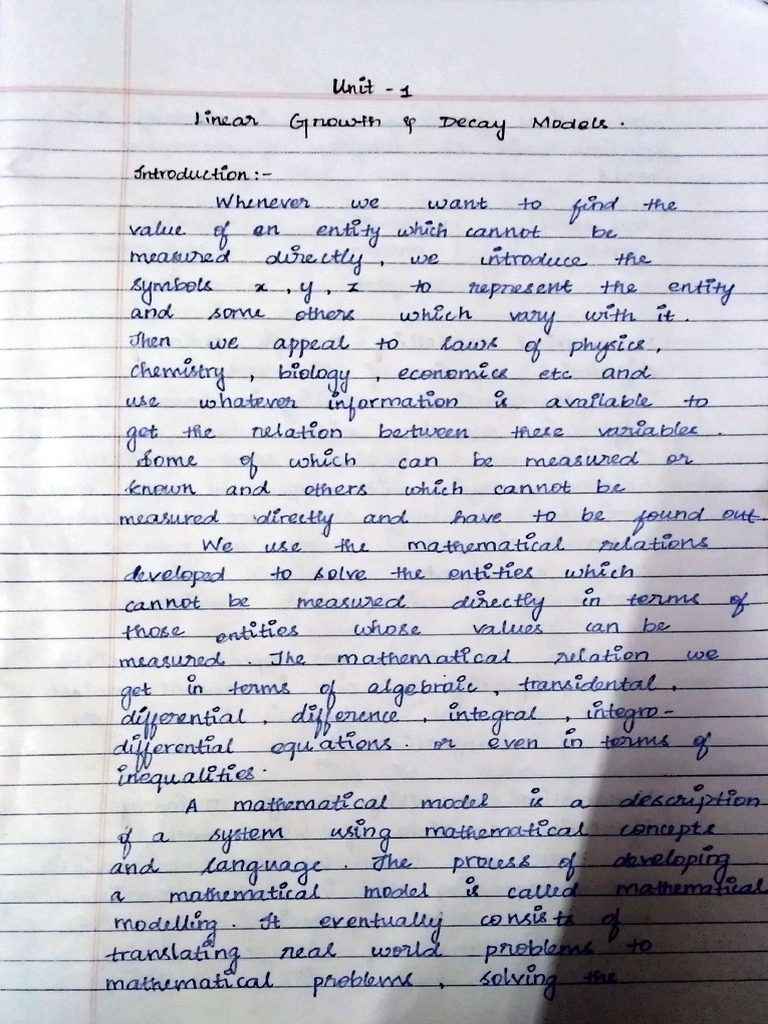 Unit - 1
Linear Growth & Decay Models.
Introduction :-
Whenever we want to find the
value of an entity which cannot be
measured directly, we introduce the
symbols x, y, z to represent the entity
and some others which vary with it.
Then we appeal to laws of physics,
chemistry, biology, economics etc and
use whatever information is available to
get the relation between these variables.
Some of which can be measured or
known and others which cannot be
measured directly and have to be found out.
We use the mathematical relations
developed to solve the entities which
cannot be measured directly in terms of
those entities whose values can be
measured. The mathematical relation we
get in terms of algebraic, transidental,
differential, difference, integral, integro-
differential equations. or even in terms of
inequalities.
A mathematical model is a description
of a system using mathematical concepts
and language. The process of developing
a mathematical model is called mathematical
modelling. It eventually consists of
translating real world problems to
mathematical problems, solving the